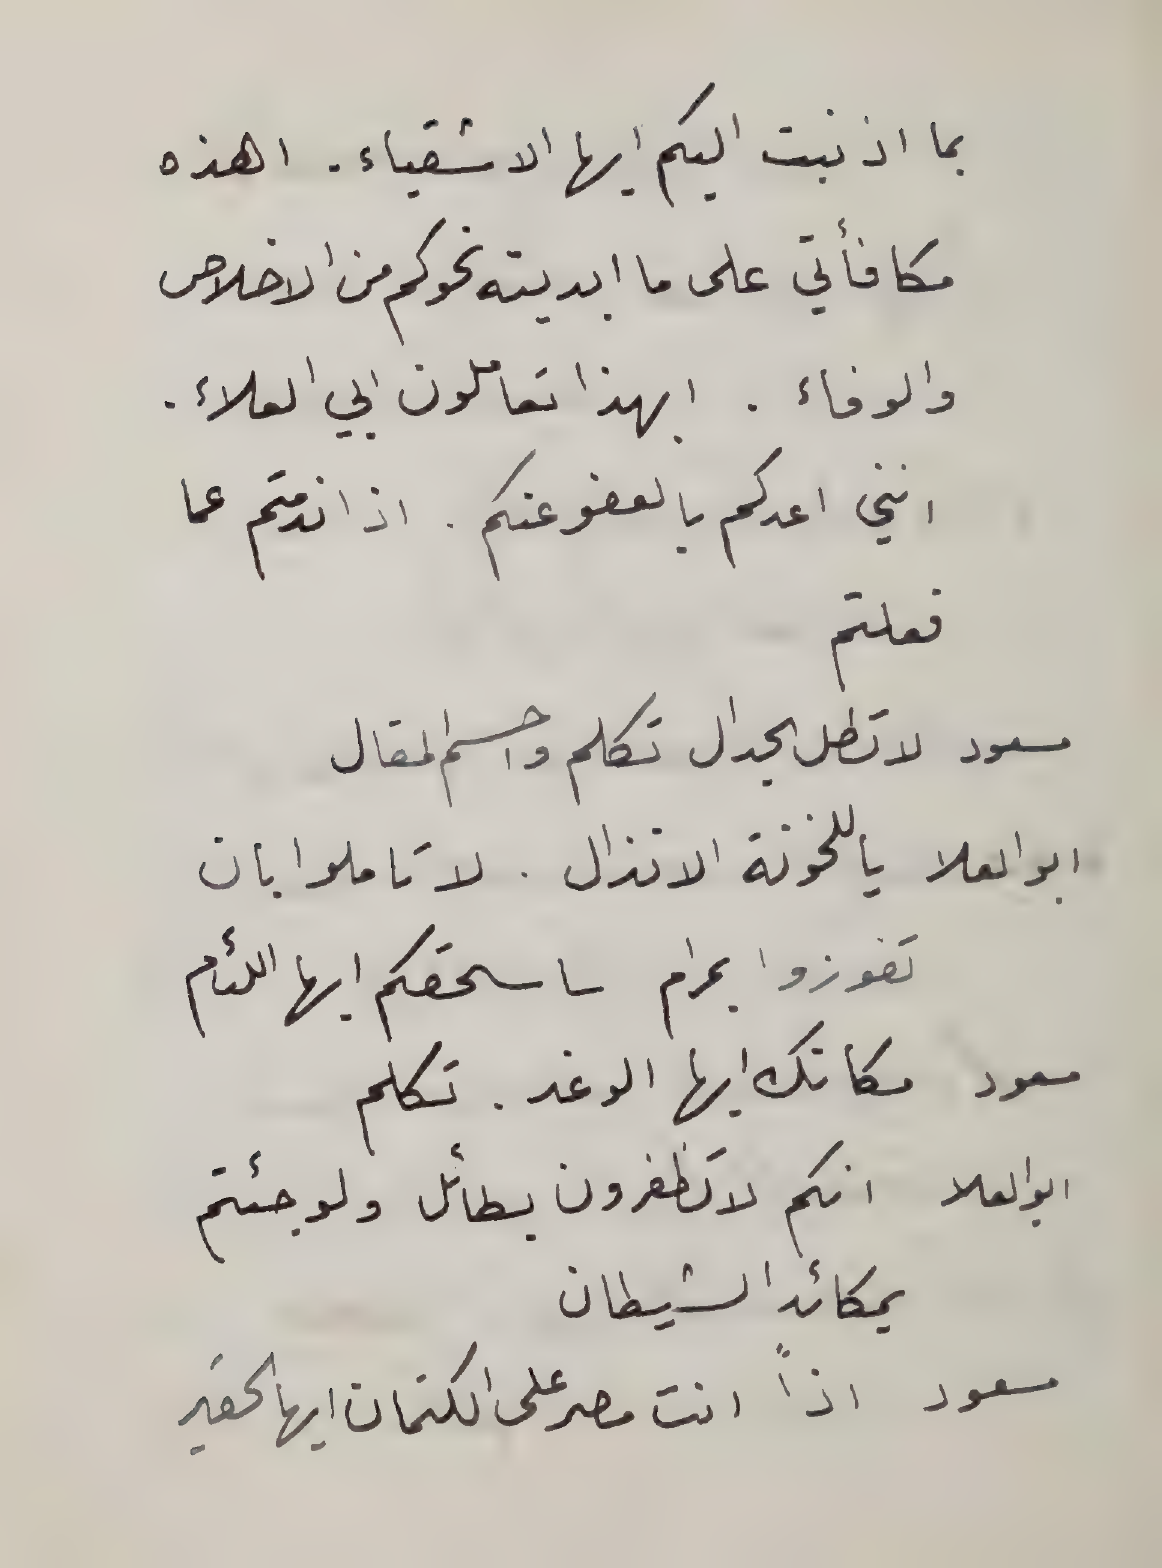 بما اذنبت اليكم ايها الاشقياء . اهذه
مكافأتي على ما ابديته نحوكم من الاخلاص
والوفاء . ابهذا تعاملون ابي العلاء .
انني اعدكم بالعفو عنكم . اذا ندمتم عما
فعلتم
مسعود لا تطل الجدال تكلم واحسم المقال
ابو العلا ياللخونة الانذال . لا تاملوا بان
تفوزوا بمرام ساسحقكم ايها اللئام
مسعود مكانك ايها الوغد . تكلم
ابو العلا انكم لا تظفرون بطائل ولو جئتم
بمكائد الشيطان
مسعود اذاً انت مصر على الكتمان ايها الحقير